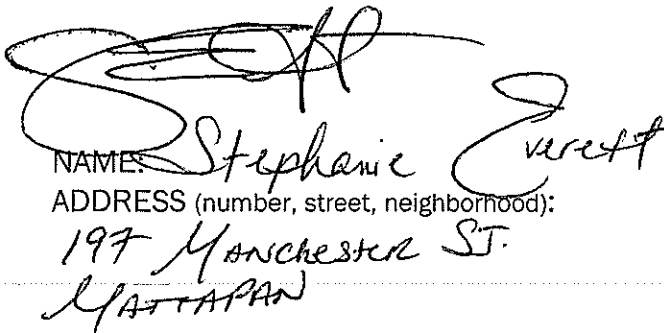 NAME: Stephanie Everett
ADDRESS (number, street, neighborhood):
197 MANchester ST.
MATTAPAN